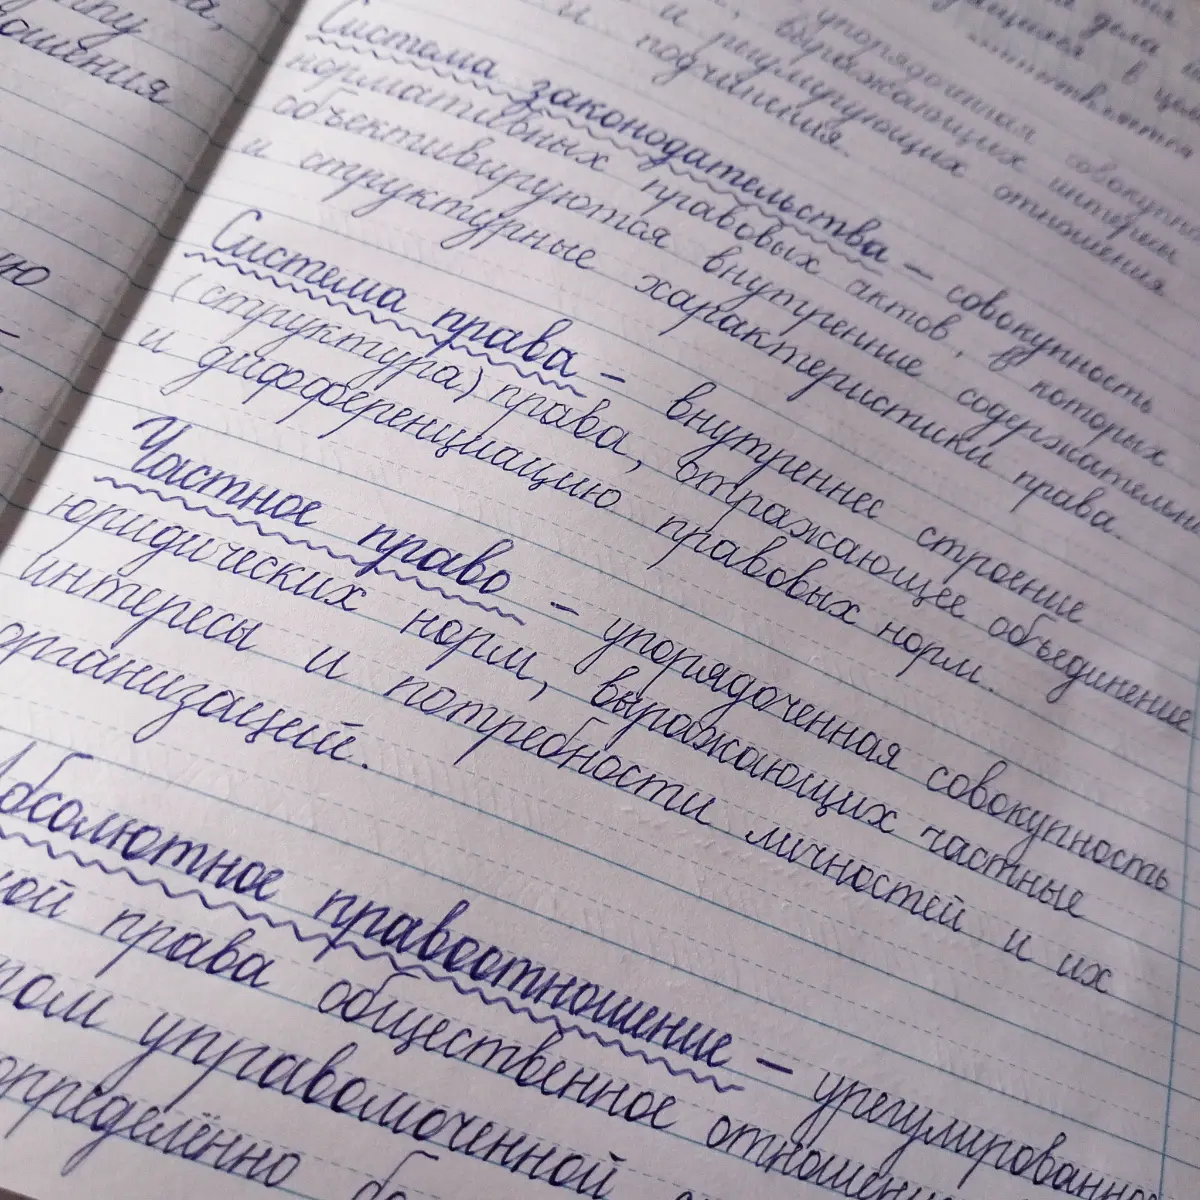 ипу
ошения
ую
дела
упорядоченная совокупн
выражающих интересы
и регулирующих отношения
и подчинения.
Система законодательства – совокупность
нормативных правовых актов, в которых
объективируются внутренние содержательн
и структурные характеристики права.
Система права – внутреннее строение
(структура) права, отражающее объединение
и дифференциацию правовых норм.
Частное право – упорядоченная совокупность
юридических норм, выражающих частные
интересы и потребности личностей и их
организаций.
Абсолютное правоотношение – урегулированно
ой права общественное отношение
том управомоченной
определённо